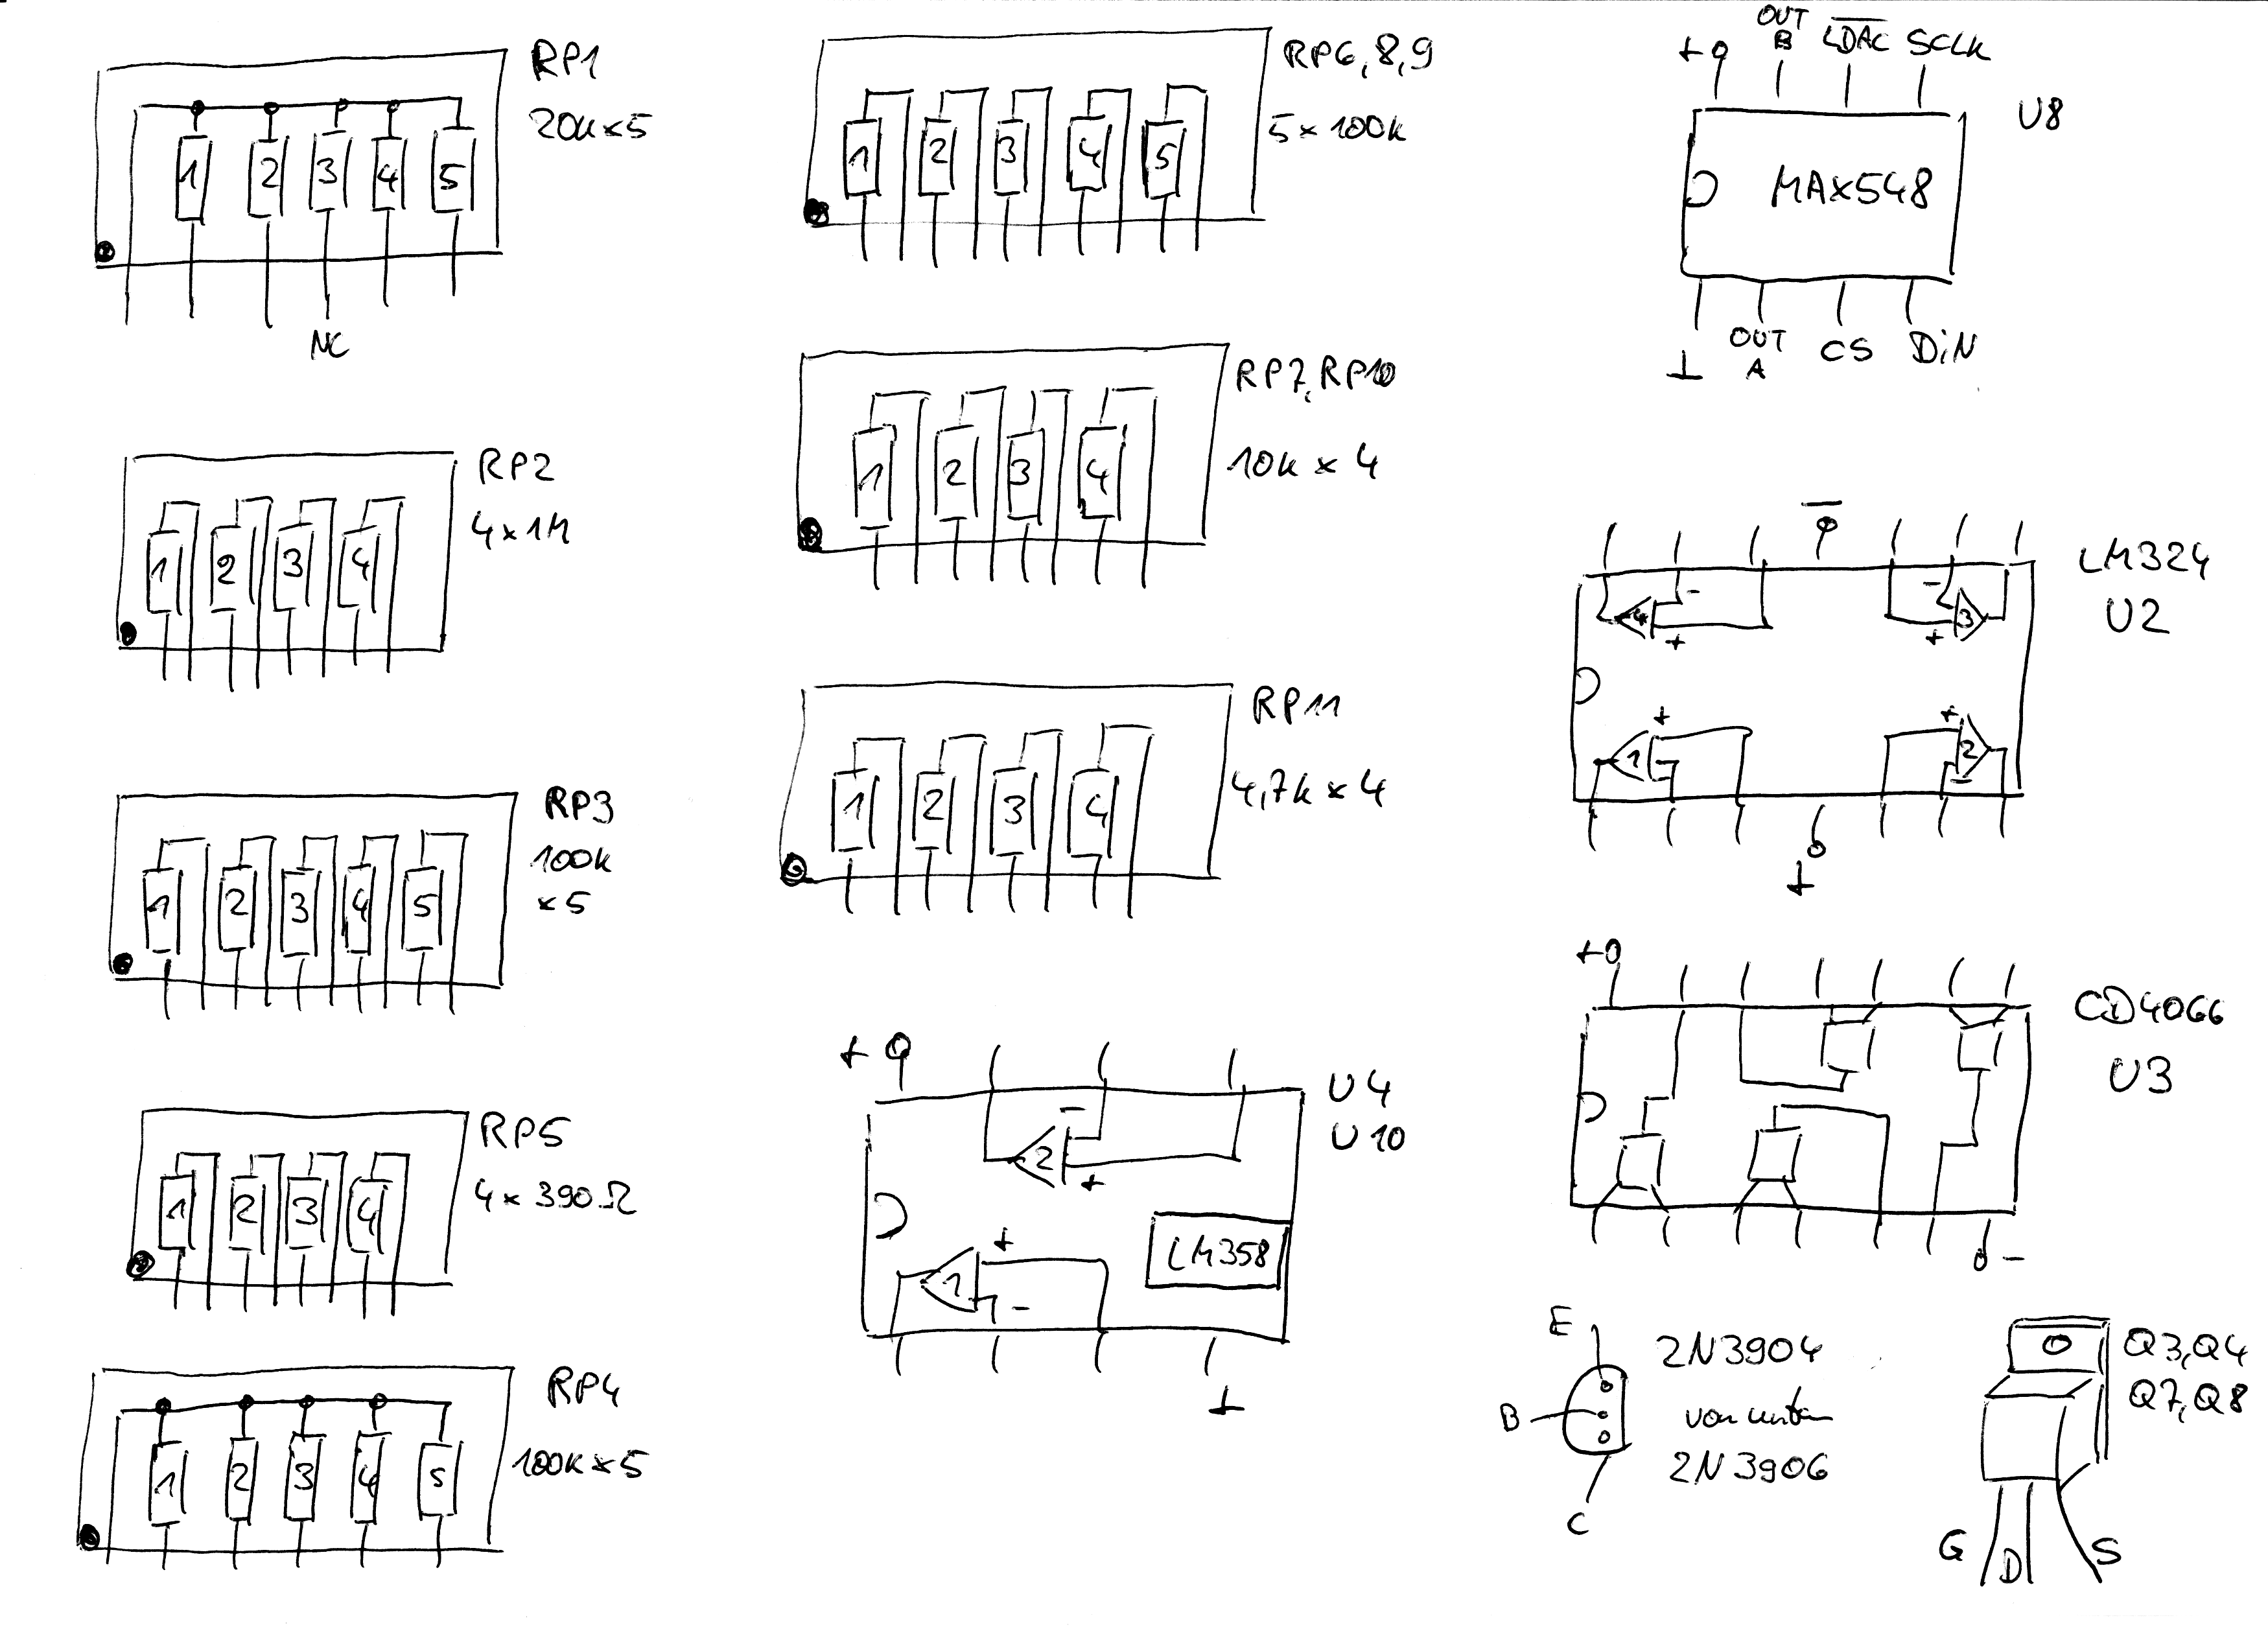 RP1
20k×5
1 2 3 4 5
NC
RP2
4×1M
1 2 3 4
RP3
100k
×5
1 2 3 4 5
RP5
4×390Ω
1 2 3 4
RP4
100k×5
1 2 3 4 5
RP6,8,9
5×100k
1 2 3 4 5
RP7,RP10
10k×4
1 2 3 4
RP11
4,7k×4
1 2 3 4
+
U4
U10
-
2
+
LM358
+
1
-
⊥
+ OUT B L̅D̅A̅C̅ SCLK
U8
MAX548
⊥ OUT A CS DiN
LM324
U2
- -
4 3
+ +
+ +
1 2
-
⊥
+
CD4066
U3
-
E
B
C
2N3904
von unten
2N3906
Q3,Q4
Q7,Q8
G D S